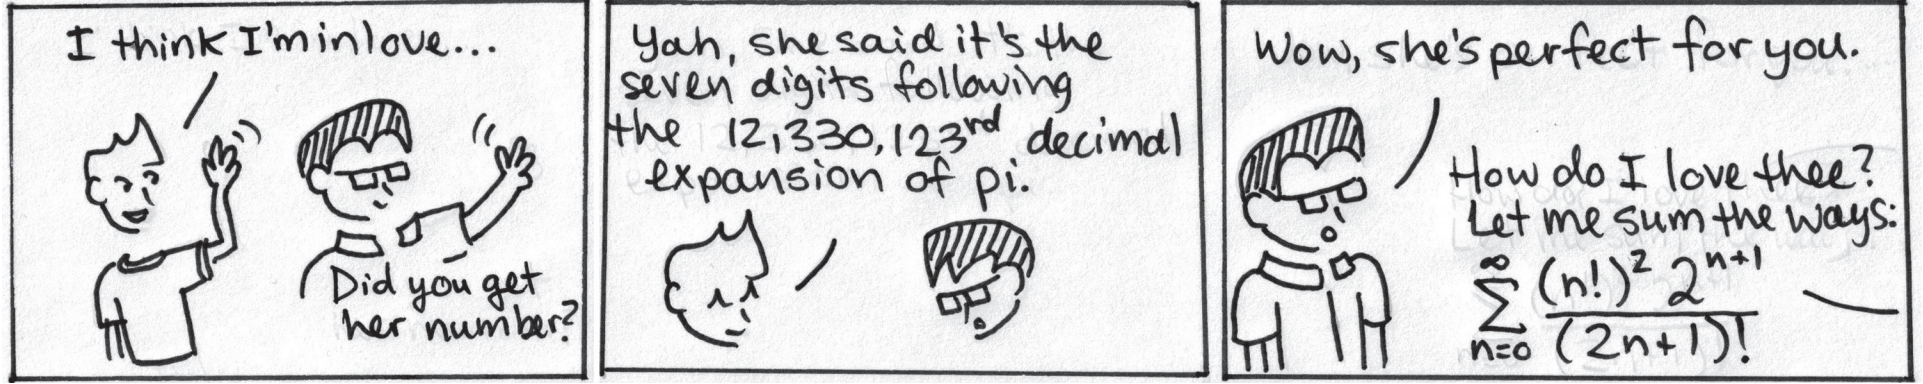 I think I'm in love...
Did you get
her number?
Yah, she said it's the
seven digits following
the 12,330,123rd decimal
expansion of pi.
Wow, she's perfect for you.
How do I love thee?
Let me sum the ways:
∞
∑ (n!)² 2ⁿ⁺¹
n=0 (2n+1)!